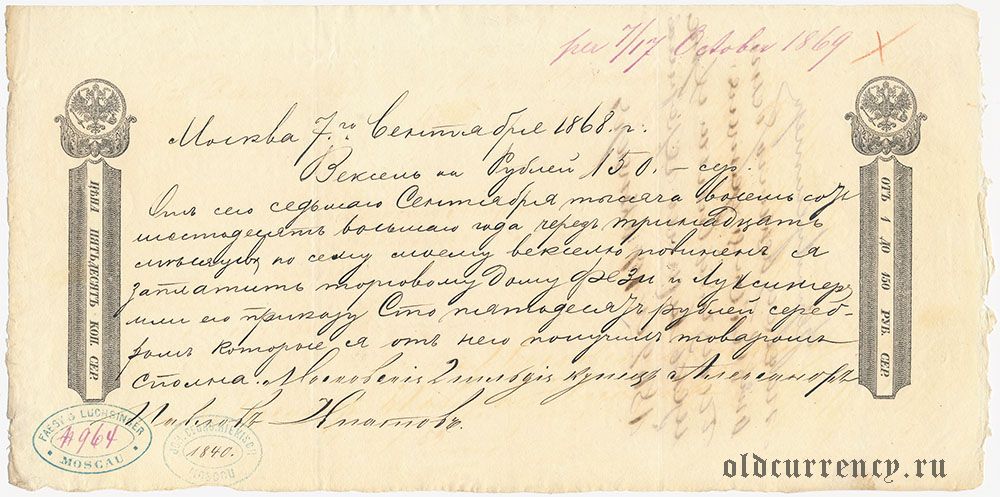 per 7/17 October 1869
Москва 7го Сентября 1868 г.
Вексель на Рублей 150.– сер.
Отъ сего седьмаго Сентября тысяча восемь сотъ
шестьдесятъ восьмаго года, черезъ тринадцать
мѣсяцовъ, по сему моему векселю повиненъ я
заплатить торговому Дому Фези и Луксингеръ
или его приказу Сто пятьдесятъ рублей сереб-
ромъ которые я отъ него получилъ товаромъ
сполна. Московскій 2 гильдіи купецъ Александръ
ЦѢНА ПЯТЬДЕСЯТЪ КОП. СЕР.
ОТЪ 1 ДО 150 РУБ. СЕР.
FAESY & LUCHSINGER
#964
MOSCAU
1840.
MOSCAU
oldcurrency.ru